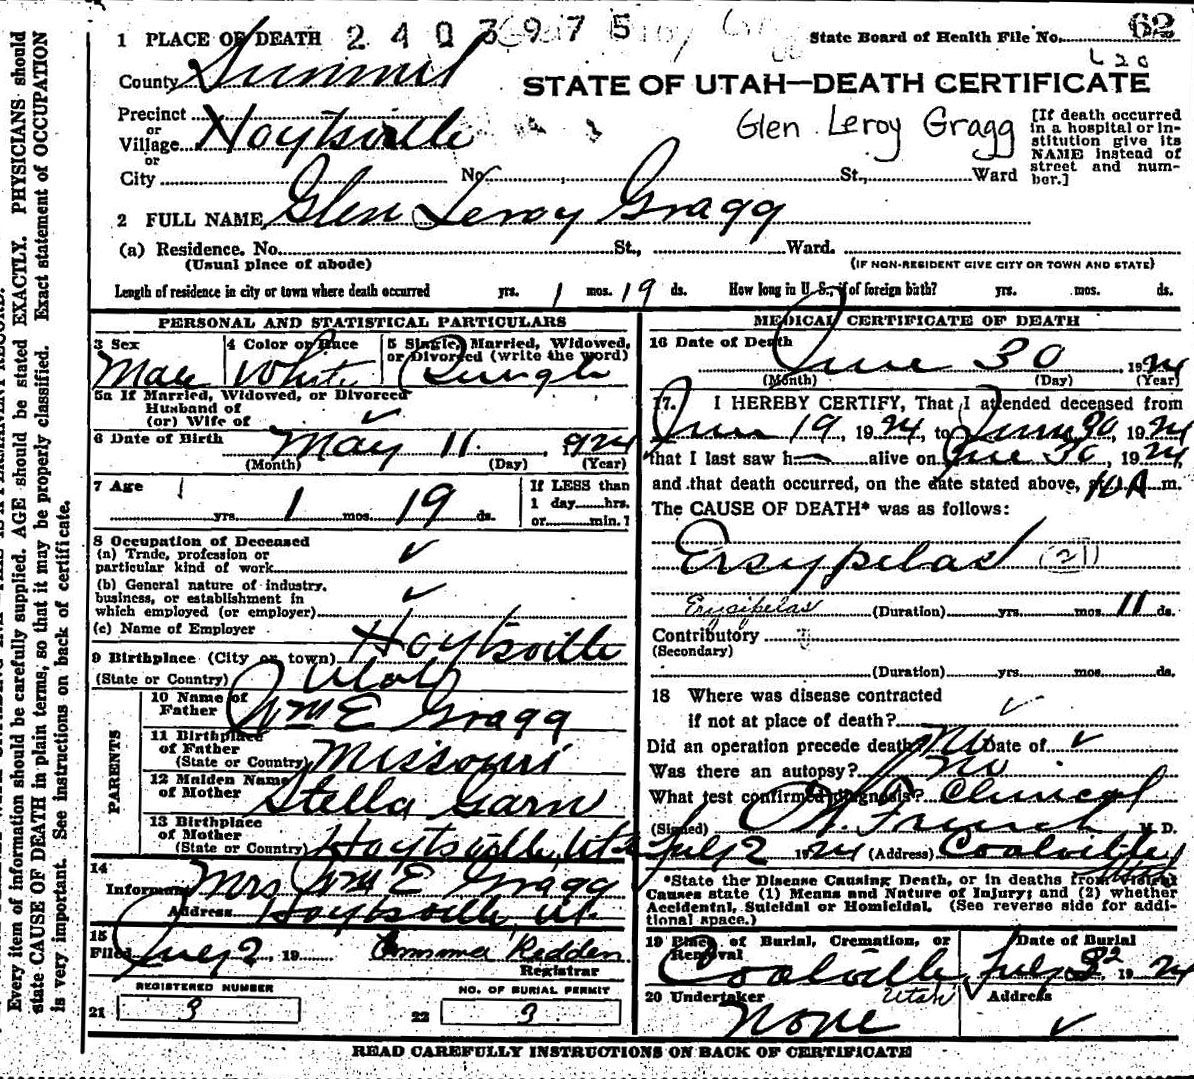 1 PLACE OF DEATH 2403975 State Board of Health File No. 62
County Summit
STATE OF UTAH—DEATH CERTIFICATE
Precinct
or
Village Hoytsville
or
Glen Leroy Gragg
[If death occurred in a hospital or institution give its NAME instead of street and number.]
City No. St., Ward
2 FULL NAME, Glen Leroy Gragg
(a) Residence. No. St., Ward.
(Usual place of abode) (IF NON-RESIDENT GIVE CITY OR TOWN AND STATE)
Length of residence in city or town where death occurred yrs. 1 mos. 19 ds. How long in U. S., if of foreign birth? yrs. mos. ds.
PERSONAL AND STATISTICAL PARTICULARS
3 Sex Male
4 Color or Race White
5 Single, Married, Widowed, or Divorced (write the word) Single
5a If Married, Widowed, or Divorced
Husband of
(or) Wife of ✓
6 Date of Birth May 11, 1924
(Month) (Day) (Year)
7 Age yrs. 1 mos. 19 ds.
If LESS than
1 day hrs.
or min.?
8 Occupation of Deceased
(a) Trade, profession or
particular kind of work ✓
(b) General nature of industry,
business, or establishment in
which employed (or employer) ✓
(c) Name of Employer
9 Birthplace (City or town) Hoytsville
(State or Country) Utah
PARENTS
10 Name of Father Wm E Gragg
11 Birthplace of Father
(State or Country) Missouri
12 Maiden Name of Mother Stella Garn
13 Birthplace of Mother
(State or Country) Hoytsville, Utah
14
Informant Mrs Wm E Gragg
Address Hoytsville, Ut.
15
Filed July 2, 19 Emma Redden
Registrar
REGISTERED NUMBER
21 3
NO. OF BURIAL PERMIT
22 3
MEDICAL CERTIFICATE OF DEATH
16 Date of Death
June 30, 1924
(Month) (Day) (Year)
17. I HEREBY CERTIFY, That I attended deceased from
June 19, 1924, to June 30, 1924
that I last saw h alive on June 30, 1924,
and that death occurred, on the date stated above, at 10 A m.
The CAUSE OF DEATH* was as follows:
Ersypelas (21)
Erysipelas (Duration) yrs. mos. 11 ds.
Contributory
(Secondary)
(Duration) yrs. mos. ds.
18 Where was disease contracted
if not at place of death? ✓
Did an operation precede death? No Date of ✓
Was there an autopsy? No
What test confirmed diagnosis? Clinical
(Signed) French M. D.
July 2 1924 (Address) Coalville, Utah
*State the Disease Causing Death, or in deaths from Violent
Causes state (1) Means and Nature of Injury; and (2) whether
Accidental, Suicidal or Homicidal. (See reverse side for additional space.)
19 Place of Burial, Cremation, or Removal
Coalville Utah
Date of Burial
July 2 1924
20 Undertaker None
Address ✓
READ CAREFULLY INSTRUCTIONS ON BACK OF CERTIFICATE
Every item of information should be carefully supplied. AGE should be stated EXACTLY. PHYSICIANS should
state CAUSE OF DEATH in plain terms, so that it may be properly classified. Exact statement of OCCUPATION
is very important. See instructions on back of certificate.